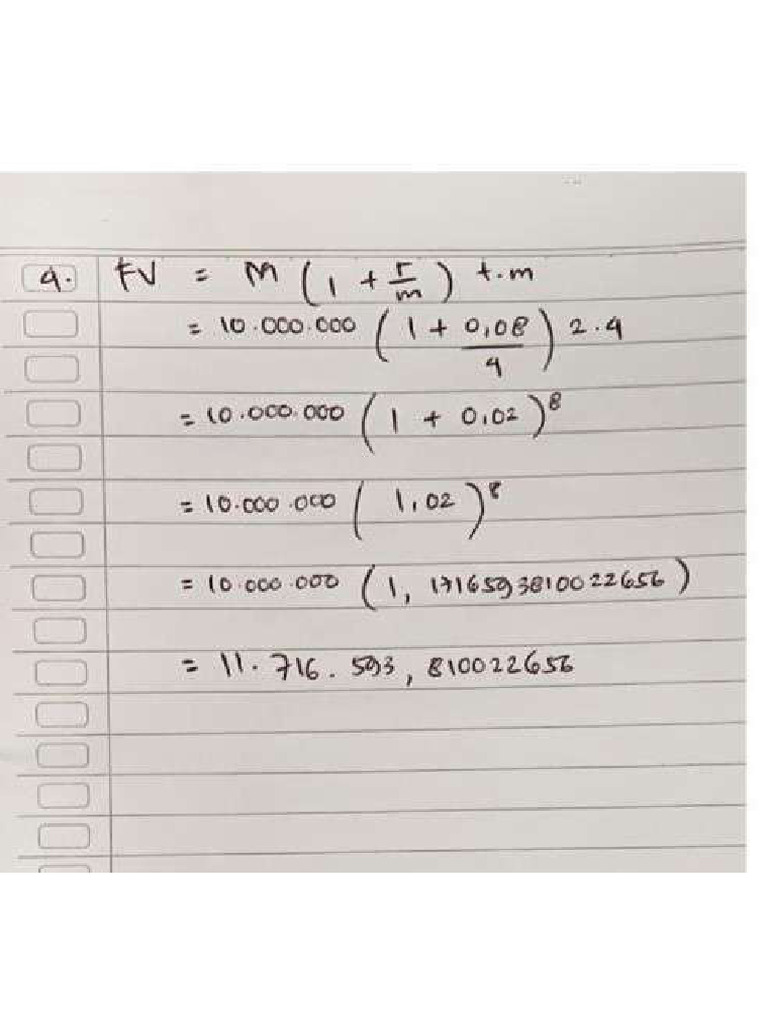 4. FV = M ( 1 + r/m ) t.m
= 10.000.000 ( 1 + 0,08/4 ) 2.4
= 10.000.000 ( 1 + 0,02 )⁸
= 10.000.000 ( 1,02 )⁸
= 10.000.000 ( 1, 1716593810022656 )
= 11.716.593,810022656